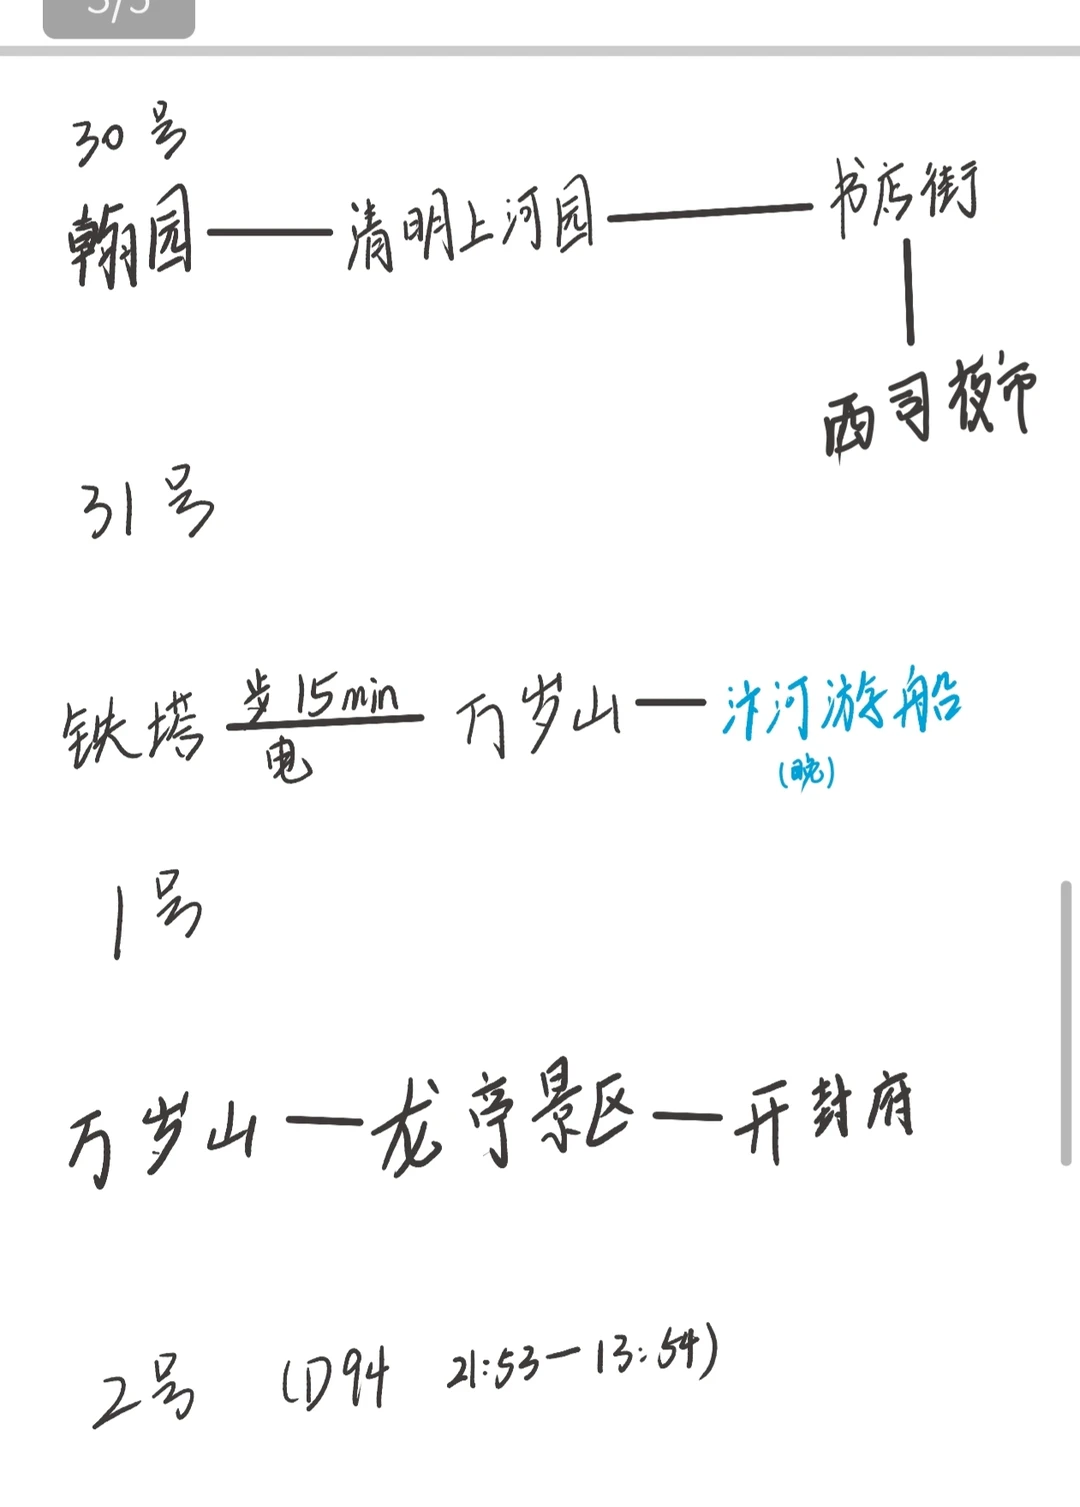 30号
翰园——清明上河园——书店街
西司夜市
31号
铁塔 步15min 电 万岁山—汴河游船
(晚)
1号
万岁山—龙亭景区—开封府
2号 (D94 21:53—13:54)